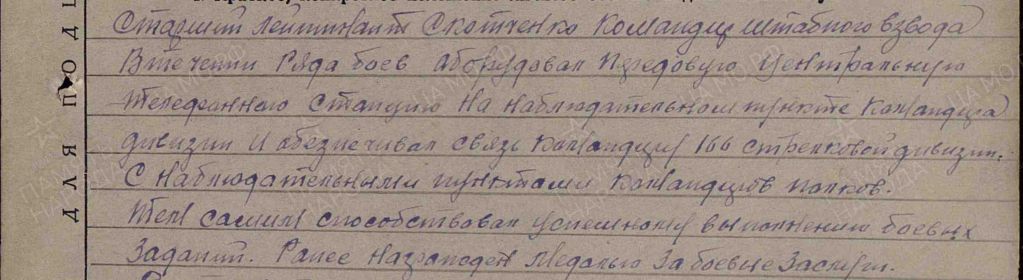 Старший лейтинант Скотченко командир штабного взвода
В течении Ряда боев аборудовал передовую центральную
телефонную станцию на наблюдательном пункте командира
дивизии и обезпечивал связь командиру 166 стрелковой дивизии.
С наблюдательными пунктами командиров полков.
Тем самим способствовал успешному выполнению боевых
Заданий. Ранее награжден медалью За боевые Заслуги.
ДЛЯ ПОД